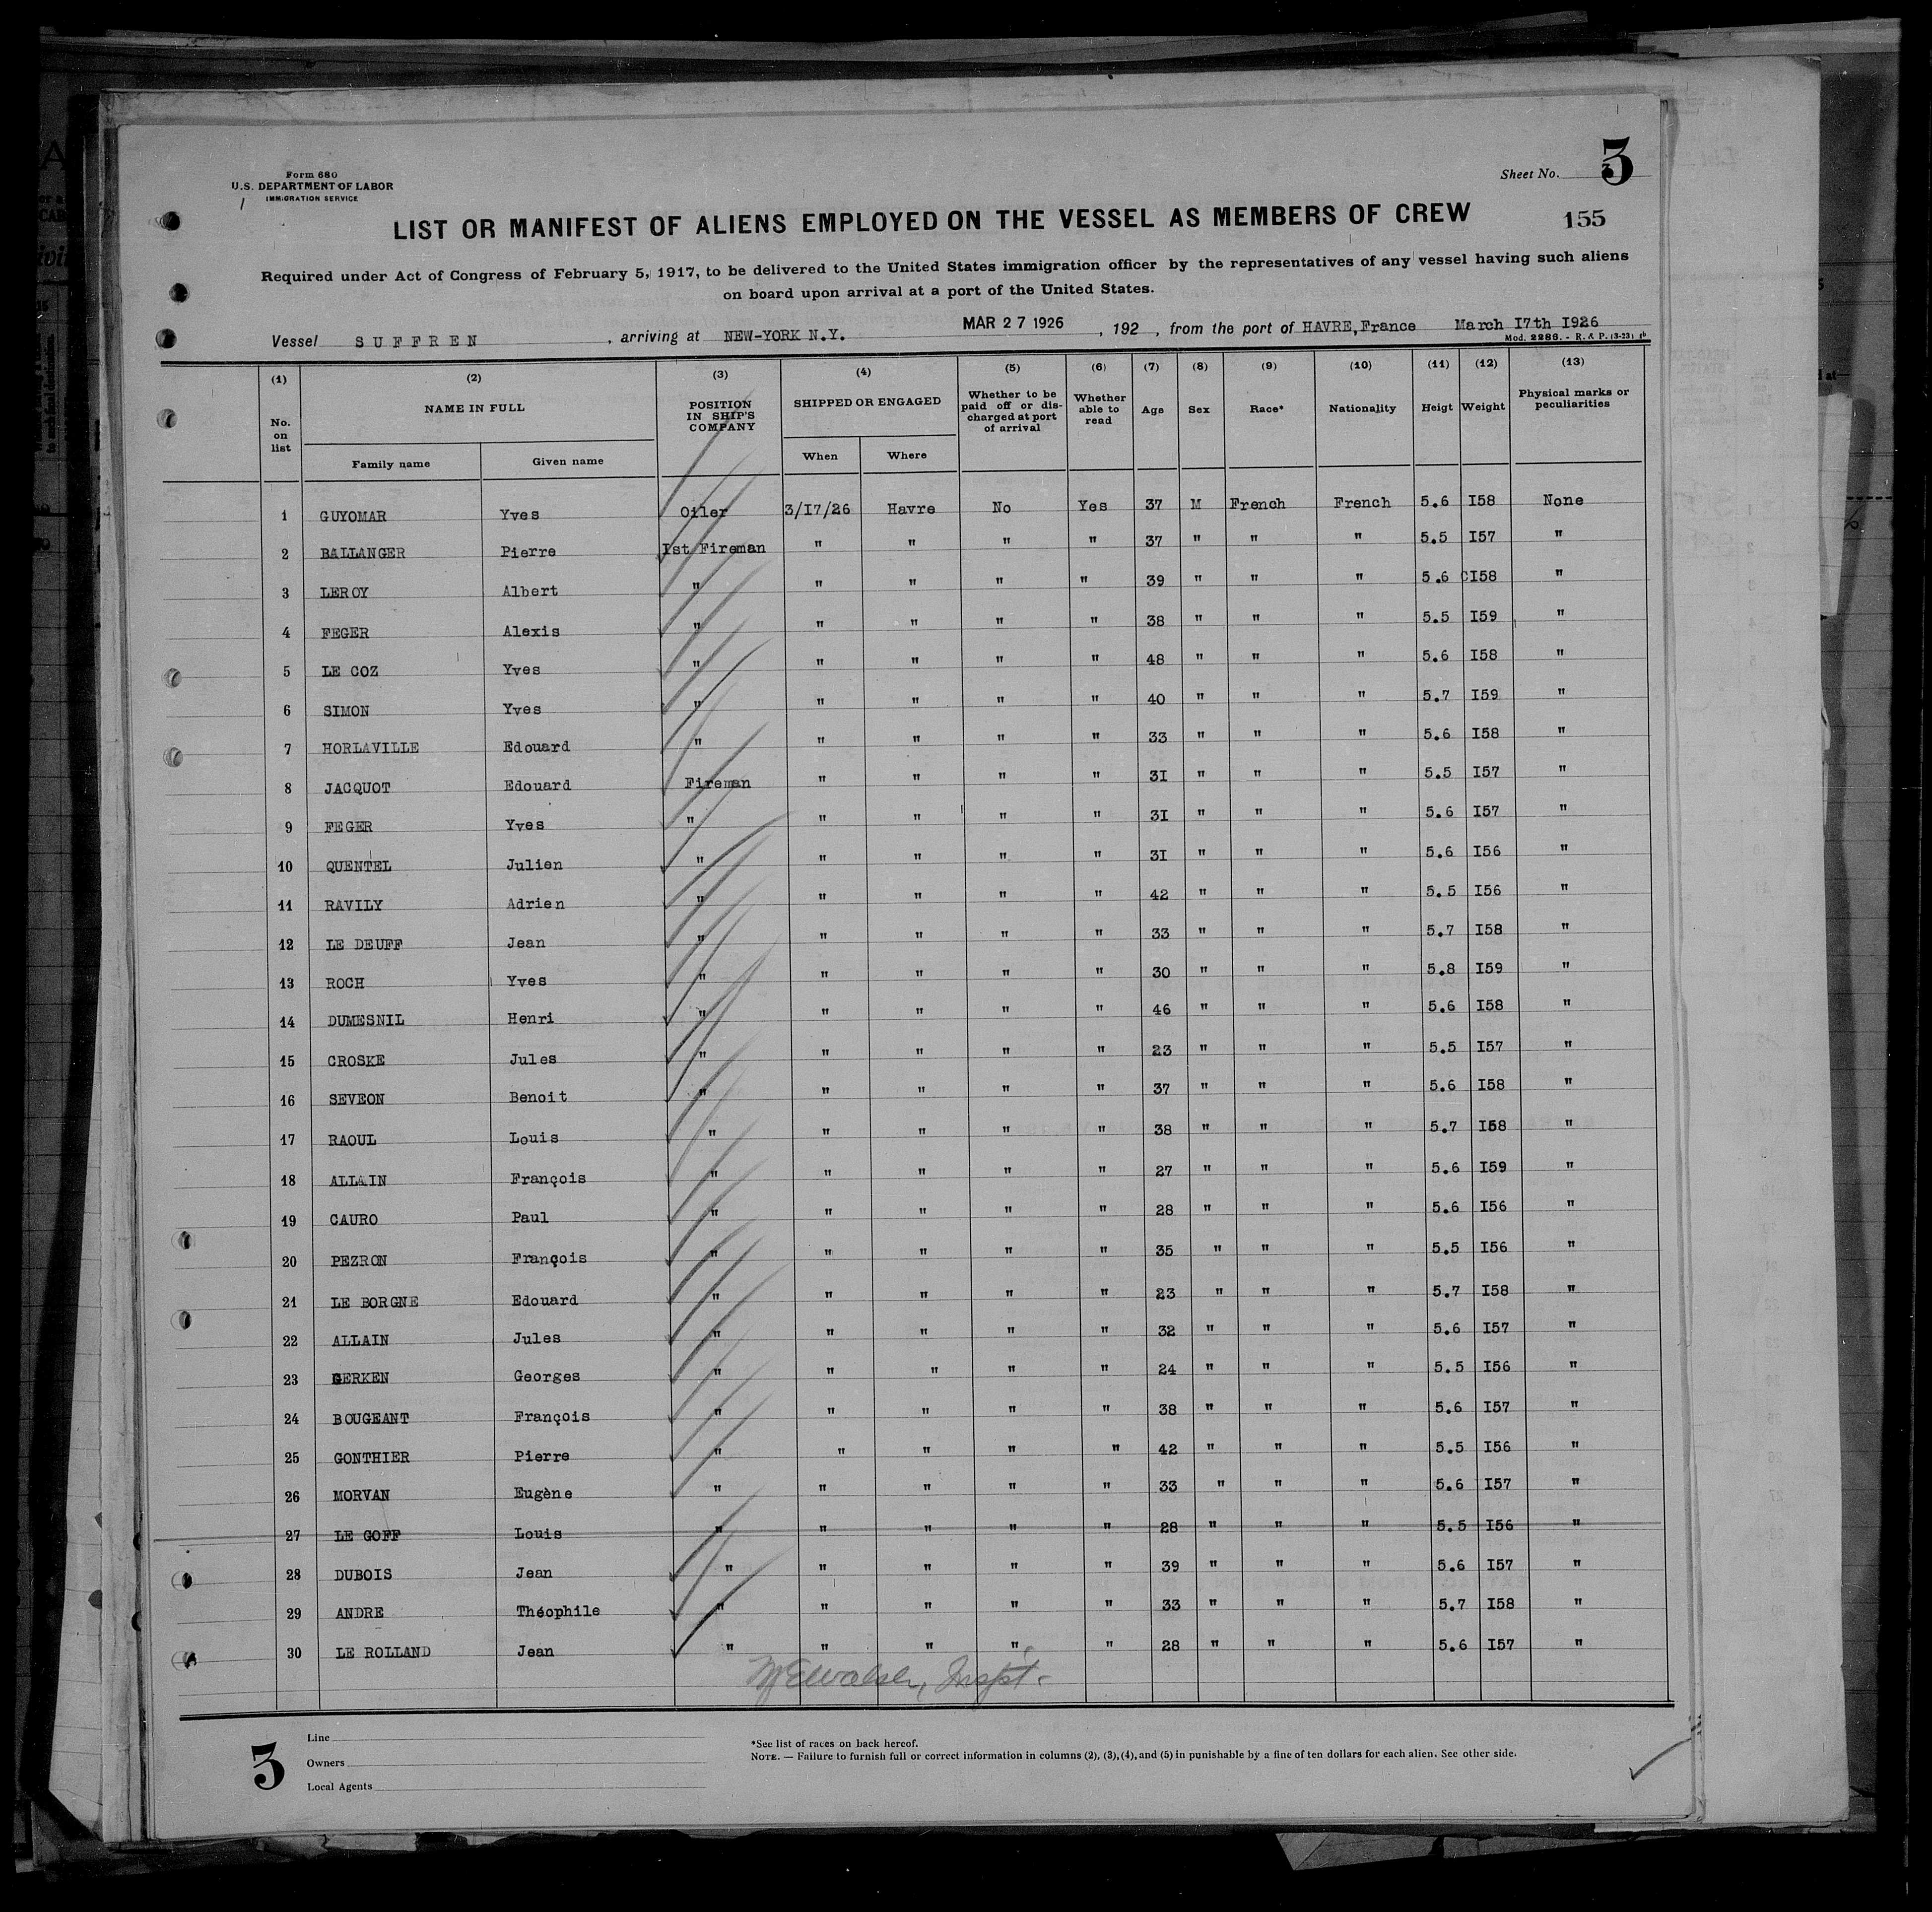 Form 680
U.S. DEPARTMENT OF LABOR
IMMIGRATION SERVICE
Sheet No. 3
155
LIST OR MANIFEST OF ALIENS EMPLOYED ON THE VESSEL AS MEMBERS OF CREW
Required under Act of Congress of February 5, 1917, to be delivered to the United States immigration officer by the representatives of any vessel having such aliens
on board upon arrival at a port of the United States.
Vessel SUFFREN, arriving at NEW-YORK N.Y. MAR 27 1926, 192 , from the port of HAVRE, France March I7th I926
Mod. 2286. - R. & P. (3-23)
(1) (2) (3) (4) (5) (6) (7) (8) (9) (10) (11) (12) (13)
No. on list NAME IN FULL POSITION IN SHIP'S COMPANY SHIPPED OR ENGAGED Whether to be paid off or discharged at port of arrival Whether able to read Age Sex Race* Nationality Heigt Weight Physical marks or peculiarities
Family name Given name When Where
1 GUYOMAR Yves Oiler 3/I7/26 Havre No Yes 37 M French French 5.6 I58 None
2 BALLANGER Pierre Ist Fireman " " " " 37 " " " 5.5 I57 "
3 LEROY Albert " " " " " 39 " " " 5.6 I58 "
4 FEGER Alexis " " " " " 38 " " " 5.5 I59 "
5 LE COZ Yves " " " " " 48 " " " 5.6 I58 "
6 SIMON Yves " " " " " 40 " " " 5.7 I59 "
7 HORLAVILLE Edouard " " " " " 33 " " " 5.6 I58 "
8 JACQUOT Edouard Fireman " " " " 3I " " " 5.5 I57 "
9 FEGER Yves " " " " " 3I " " " 5.6 I57 "
10 QUENTEL Julien " " " " " 3I " " " 5.6 I56 "
11 RAVILY Adrien " " " " " 42 " " " 5.5 I56 "
12 LE DEUFF Jean " " " " " 33 " " " 5.7 I58 "
13 ROCH Yves " " " " " 30 " " " 5.8 I59 "
14 DUMESNIL Henri " " " " " 46 " " " 5.6 I58 "
15 CROSKE Jules " " " " " 23 " " " 5.5 I57 "
16 SEVEON Benoit " " " " " 37 " " " 5.6 I58 "
17 RAOUL Louis " " " " " 38 " " " 5.7 I58 "
18 ALLAIN François " " " " " 27 " " " 5.6 I59 "
19 CAURO Paul " " " " " 28 " " " 5.6 I56 "
20 PEZRON François " " " " " 35 " " " 5.5 I56 "
21 LE BORGNE Edouard " " " " " 23 " " " 5.7 I58 "
22 ALLAIN Jules " " " " " 32 " " " 5.6 I57 "
23 GERKEN Georges " " " " " 24 " " " 5.5 I56 "
24 BOUGEANT François " " " " " 38 " " " 5.6 I57 "
25 GONTHIER Pierre " " " " " 42 " " " 5.5 I56 "
26 MORVAN Eugène " " " " " 33 " " " 5.6 I57 "
27 LE GOFF Louis " " " " " 28 " " " 5.5 I56 "
28 DUBOIS Jean " " " " " 39 " " " 5.6 I57 "
29 ANDRE Théophile " " " " " 33 " " " 5.7 I58 "
30 LE ROLLAND Jean " " " " " 28 " " " 5.6 I57 "
Inspt.
3
Line
Owners
Local Agents
*See list of races on back hereof.
NOTE. — Failure to furnish full or correct information in columns (2), (3), (4), and (5) in punishable by a fine of ten dollars for each alien. See other side.